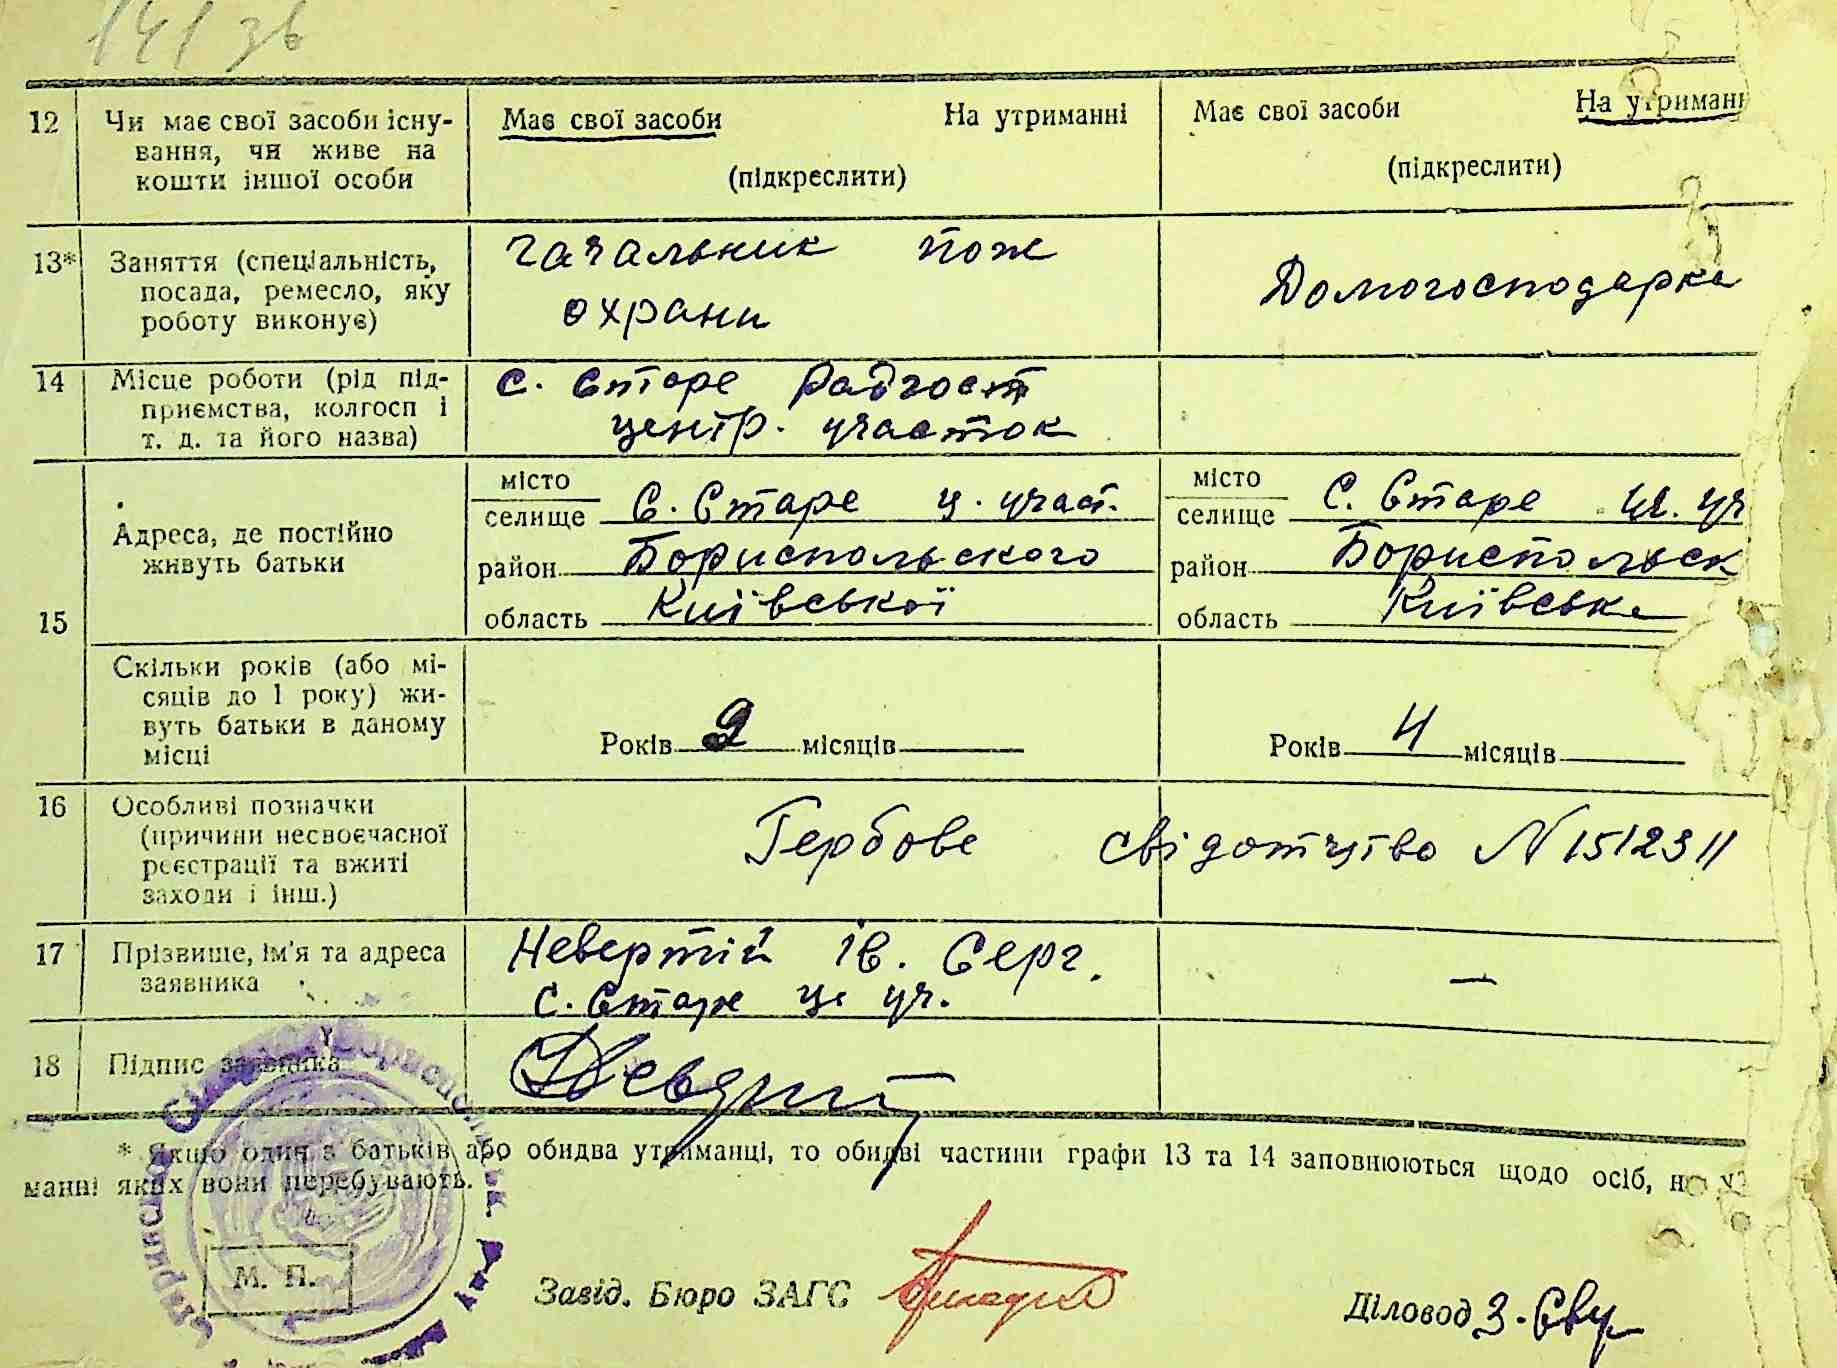 141 зв
12 Чи має свої засоби існу- Має свої засоби На утриманні Має свої засоби На утриманн
вання, чи живе на
кошти іншої особи (підкреслити) (підкреслити)
13* Заняття (спеціальність, начальник пож Домогосподарка
посада, ремесло, яку
роботу виконує) охрани
14 Місце роботи (рід під- с. Старе Радгосп
приємства, колгосп і центр. участок
т. д. та його назва)
15 Адреса, де постійно
живуть батьки
місто місто
селище С. Старе ц. участ. селище С. Старе ц. уч
район Бориспольского район Бориспольск
область Київської область Київська
Скільки років (або мі-
сяців до 1 року) жи-
вуть батьки в даному
місці
Років 2 місяців Років 4 місяців
16 Особливі позначки
(причини несвоєчасної Гербове свідотцтво N 1512311
реєстрації та вжиті
заходи і інш.)
17 Прізвище, ім'я та адреса Невертій Ів. Серг. —
заявника с. Старе це уч.
18 Підпис заявника
* Якщо один з батьків або обидва утриманці, то обидві частини графи 13 та 14 заповнюються щодо осіб, на у
манні яких вони перебувають.
М. П.
Завід. Бюро ЗАГС
Діловод З.